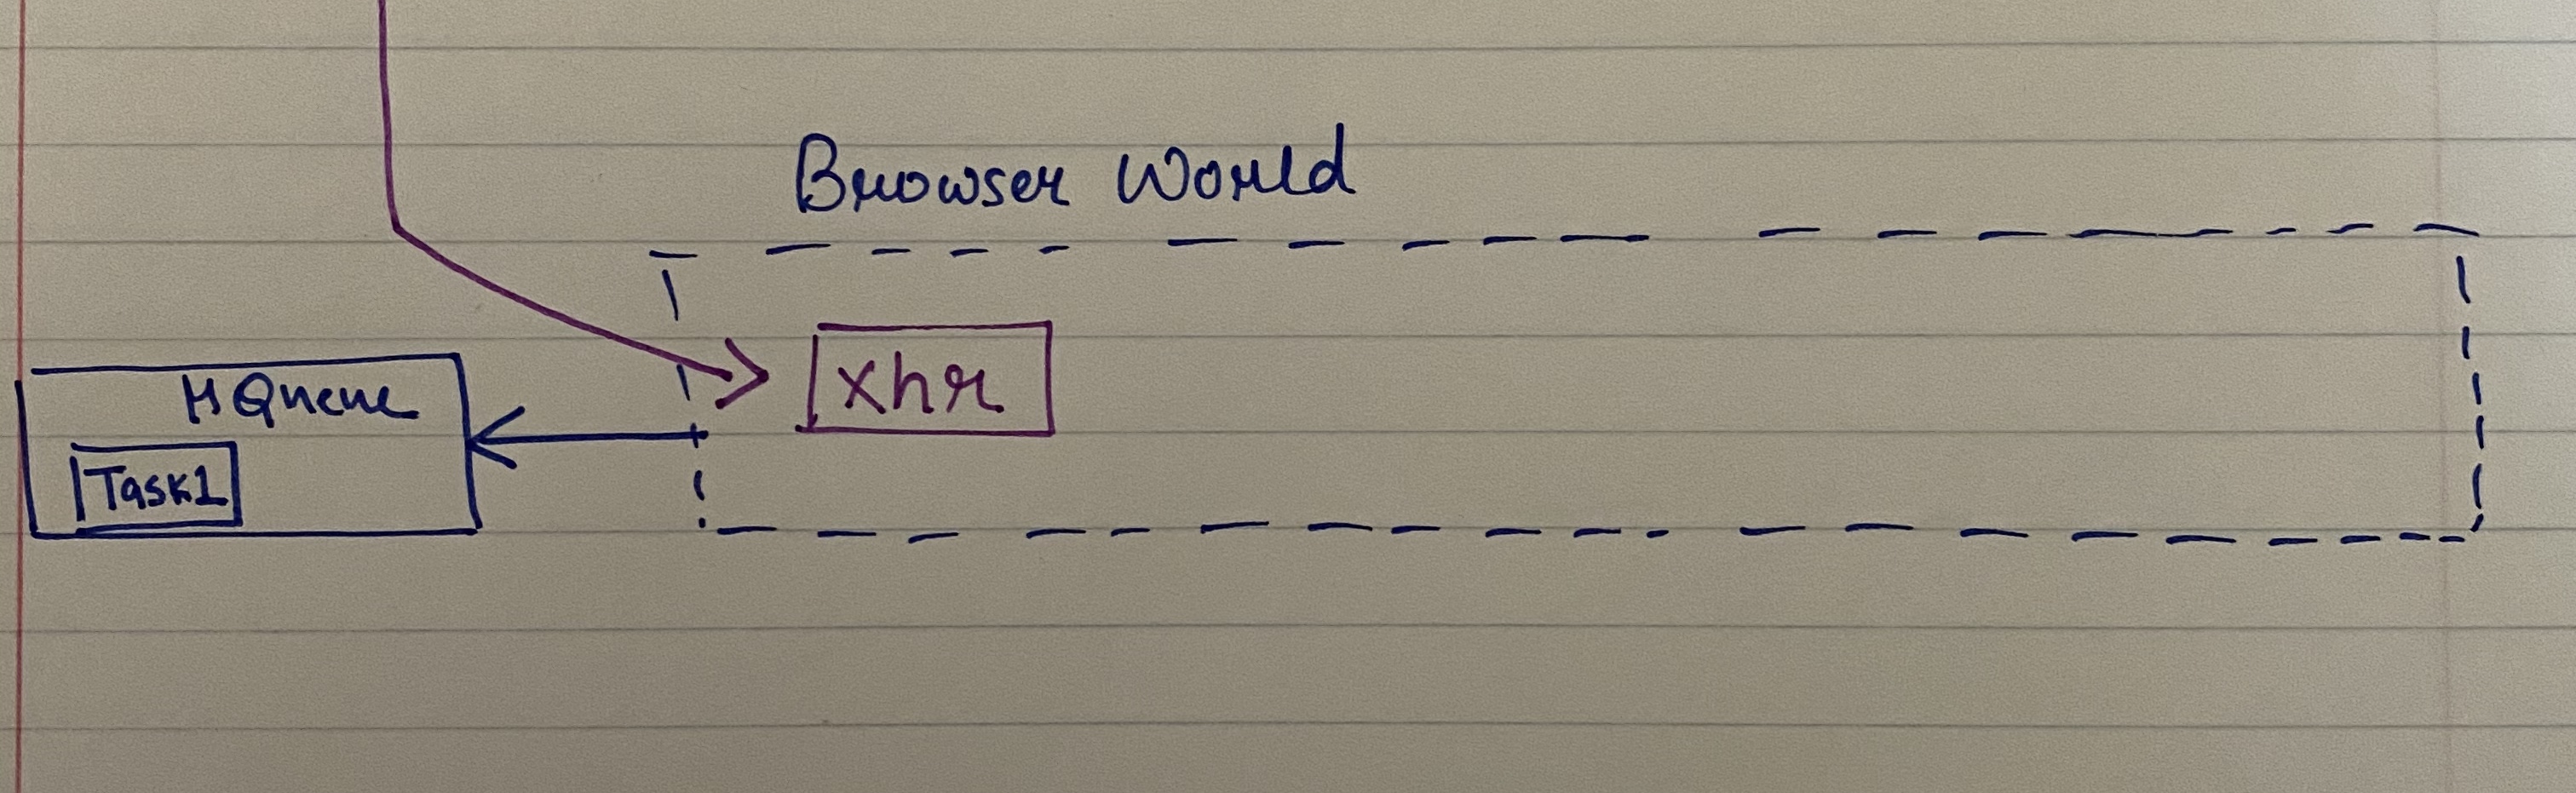 Browser World
xhr
MQueue
Task1